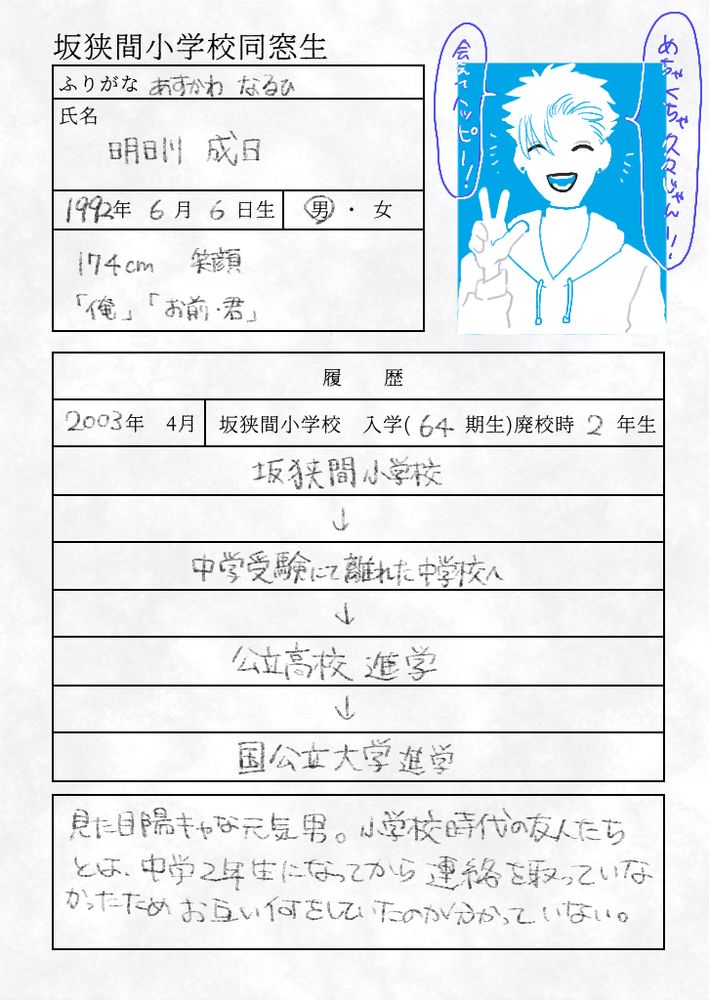 坂狭間小学校同窓生
ふりがな あすかわ なるひ
氏名
明日川 成日
1992年 6月 6日生 男・女
174cm 笑顔
「俺」「お前・君」
めちゃくちゃ久々じゃんー!
会えてハッピー!
履 歴
2003年 4月 坂狭間小学校 入学(64期生)廃校時 2年生
坂狭間小学校
↓
中学受験にて離れた中学校へ
↓
公立高校 進学
↓
国公立大学進学
見た目陽キャな元気男。小学校時代の友人たち
とは、中学2年生になってから連絡を取っていな
かったためお互い何をしていたのか分かっていない。